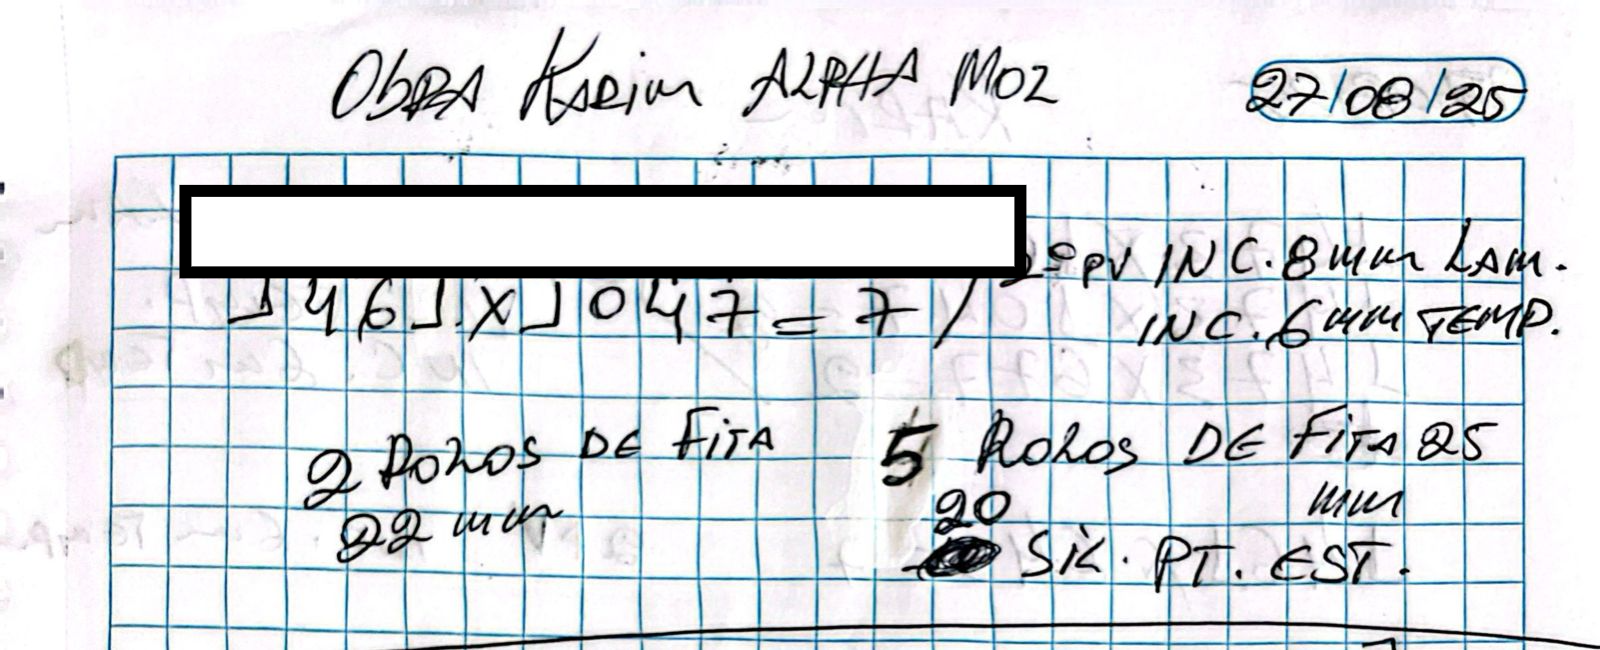 OBRA KARIM ALPHA MOZ 27/08/25
2º PV INC. 8mm LAM.
1461 X 1047 = 7 / INC. 6mm TEMP.
2 ROLOS DE FITA 5 ROLOS DE FITA 25
22 mm 20 mm
SIL. PT. EST.